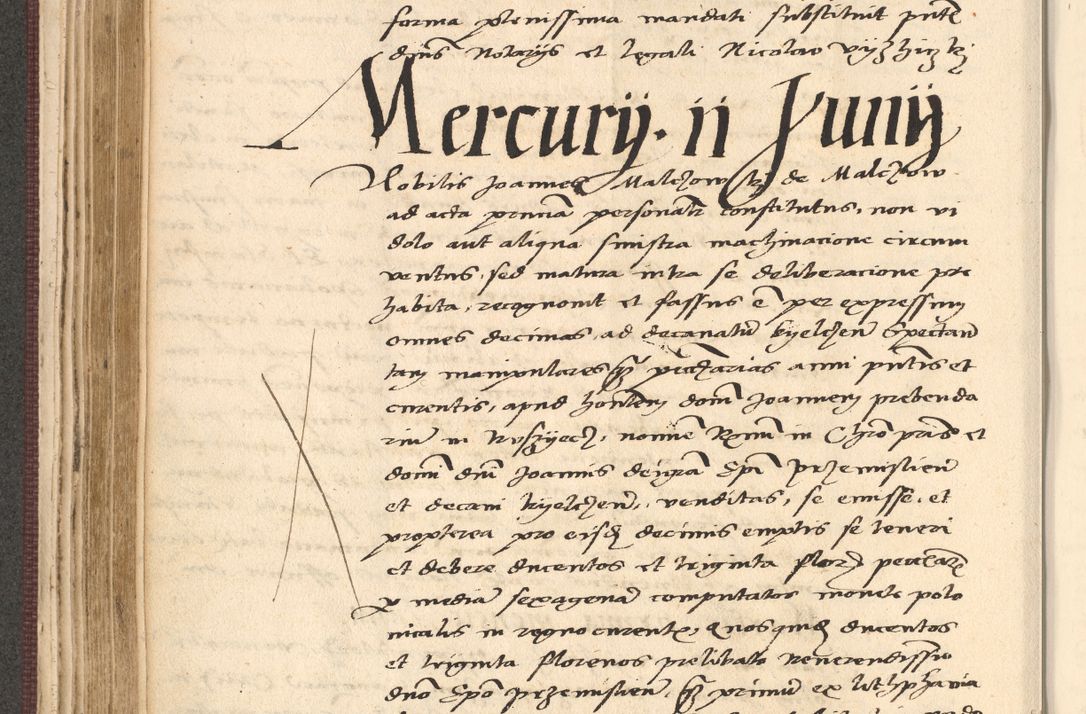 forma plenissima mandati substituit pnte
dnis Notarys et legali Nicolao
Mercurij · ii Junij
Nobilis Joannes Malchowski de Malchow
ad acta pnia personalr constitutus, non vi
dolo aut aliqua sinistra machinacione circum
ventus, sed matura intra se deliberacione pre
habita, recognovit et fassus e per expressum
omnes decimas, ad decanatu kyelchen spectan
tes manipulares anni pntis et
curentis, apud honlem domi Joannem prebenda
riu in, nomine Rmi in Chro pris et
domi dni Joannis dei gra Epi przemislien
et decani kyelchen, venditas, se emisse, et
propterea pro eisd decimis emptis se teneri
et debere ducentos et triginta flor pecuarie
p media sexagena computatos monete polo
nicalis in regno curente, quosquid ducentos
et triginta florenos prelibato Reverendissio
dno Epo przemislien, primu ex lithphania